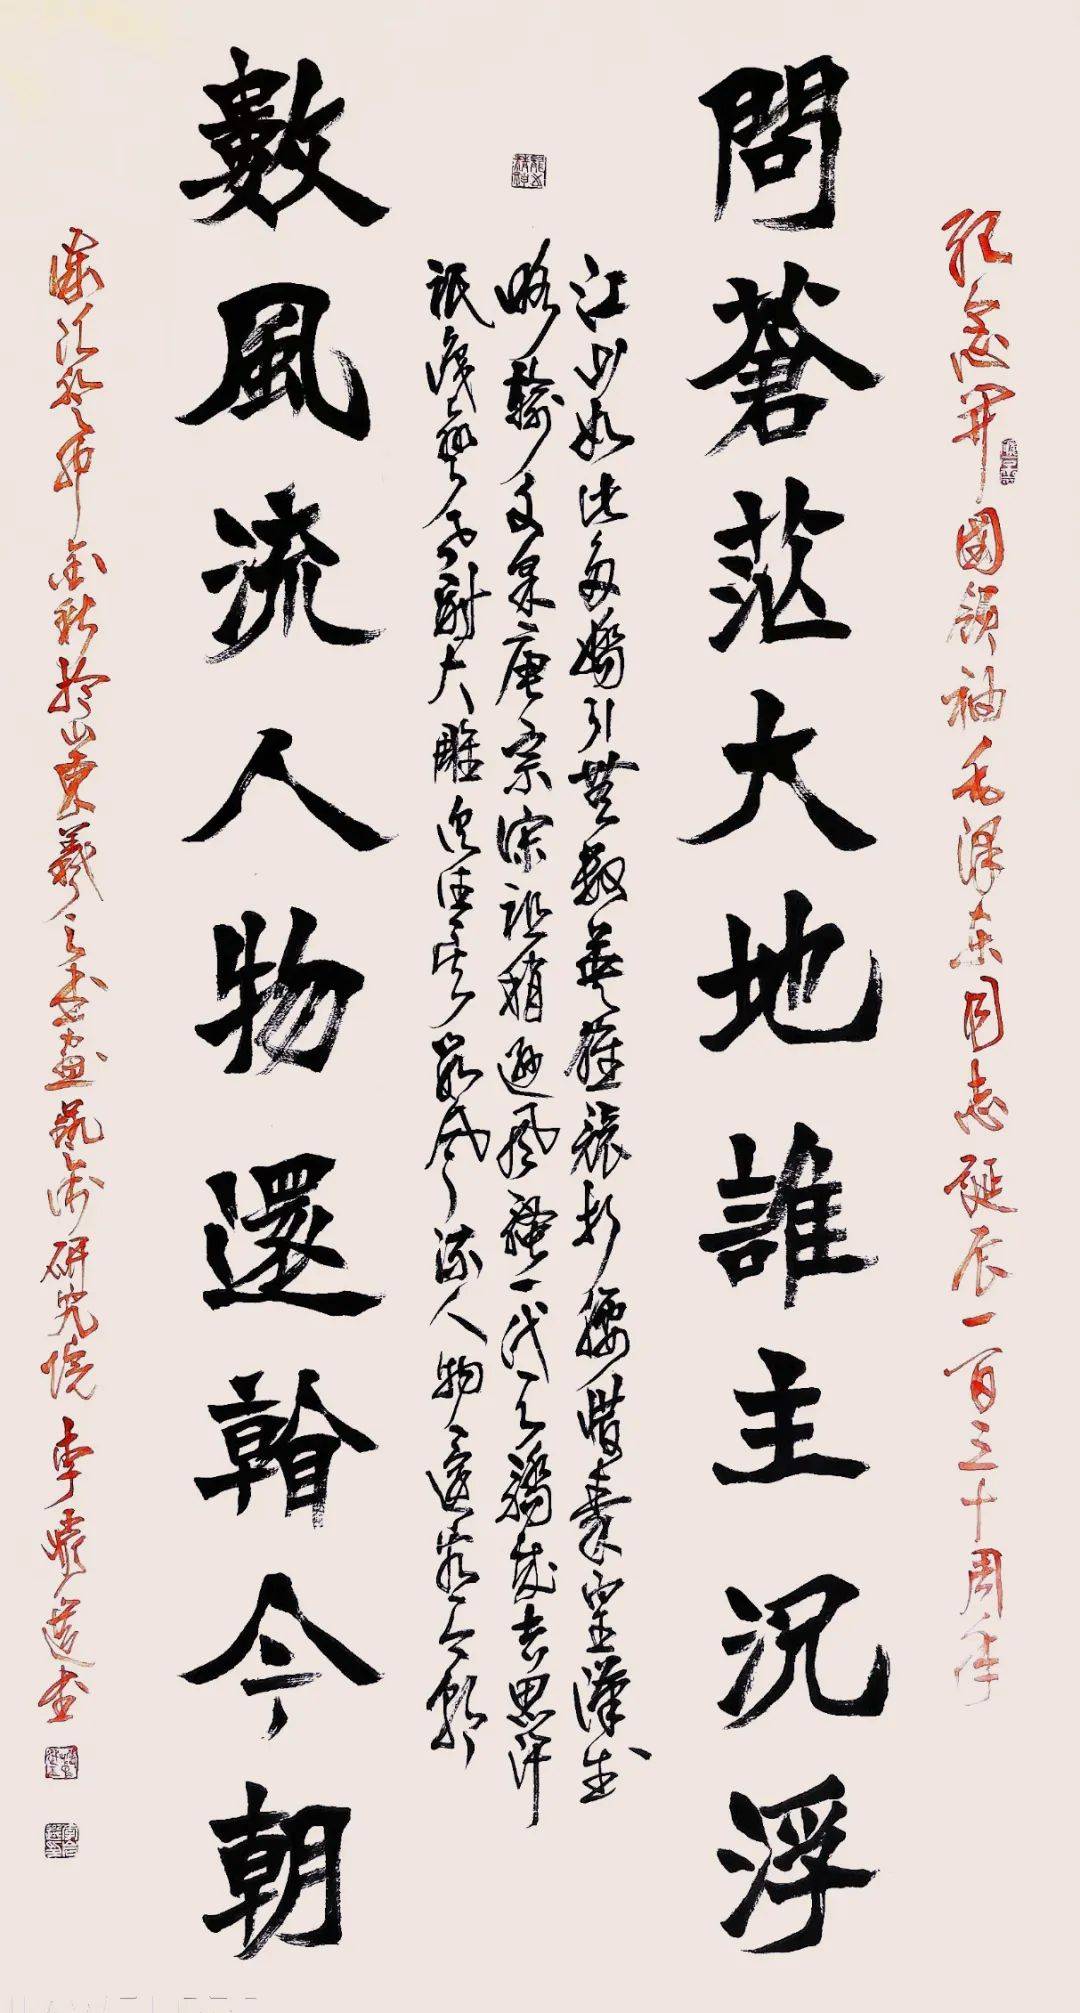 紀念開國領袖毛澤東同志誕辰一百三十周年
問蒼茫大地誰主沉浮
江山如此多嬌引無數英雄競折腰惜秦皇漢武
略輸文采唐宗宋祖稍遜風騷一代天驕成吉思汗
祇識彎弓射大雕俱往矣數風流人物還看今朝
數風流人物還看今朝
歲次癸卯金秋於山東羲之書畫藝術研究院李書